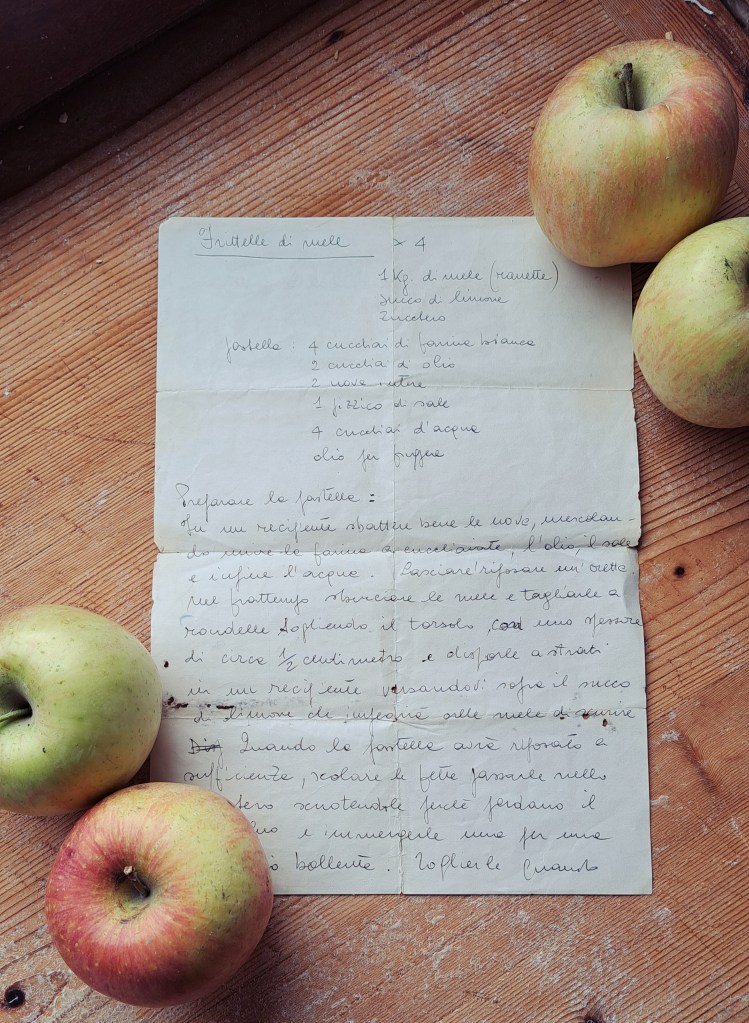 Frittelle di mele × 4
1 Kg. di mele (ranette)
succo di limone
zucchero
pastella : 4 cucchiai di farina bianca
2 cucchiai di olio
2 uova intere
1 pizzico di sale
4 cucchiai d'acqua
olio per friggere
Preparare la pastella :
In un recipiente sbattere bene le uova, mescolan-
do unire la farina a cucchiaiate, l'olio, il sale
e infine l'acqua. Lasciare riposare un'oretta
nel frattempo sbucciare le mele e tagliarle a
rondelle togliendo il torsolo, con uno spessore
di circa 1/2 centimetro e disporle a strati
in un recipiente versandovi sopra il succo
di limone che impedirà alle mele di scurire
Quando la pastella avrà riposato a
sufficienza, scolare le fette passarle nello
scuotendole perchè perdano il
e immergerle una per una
bollente. Toglierle quando